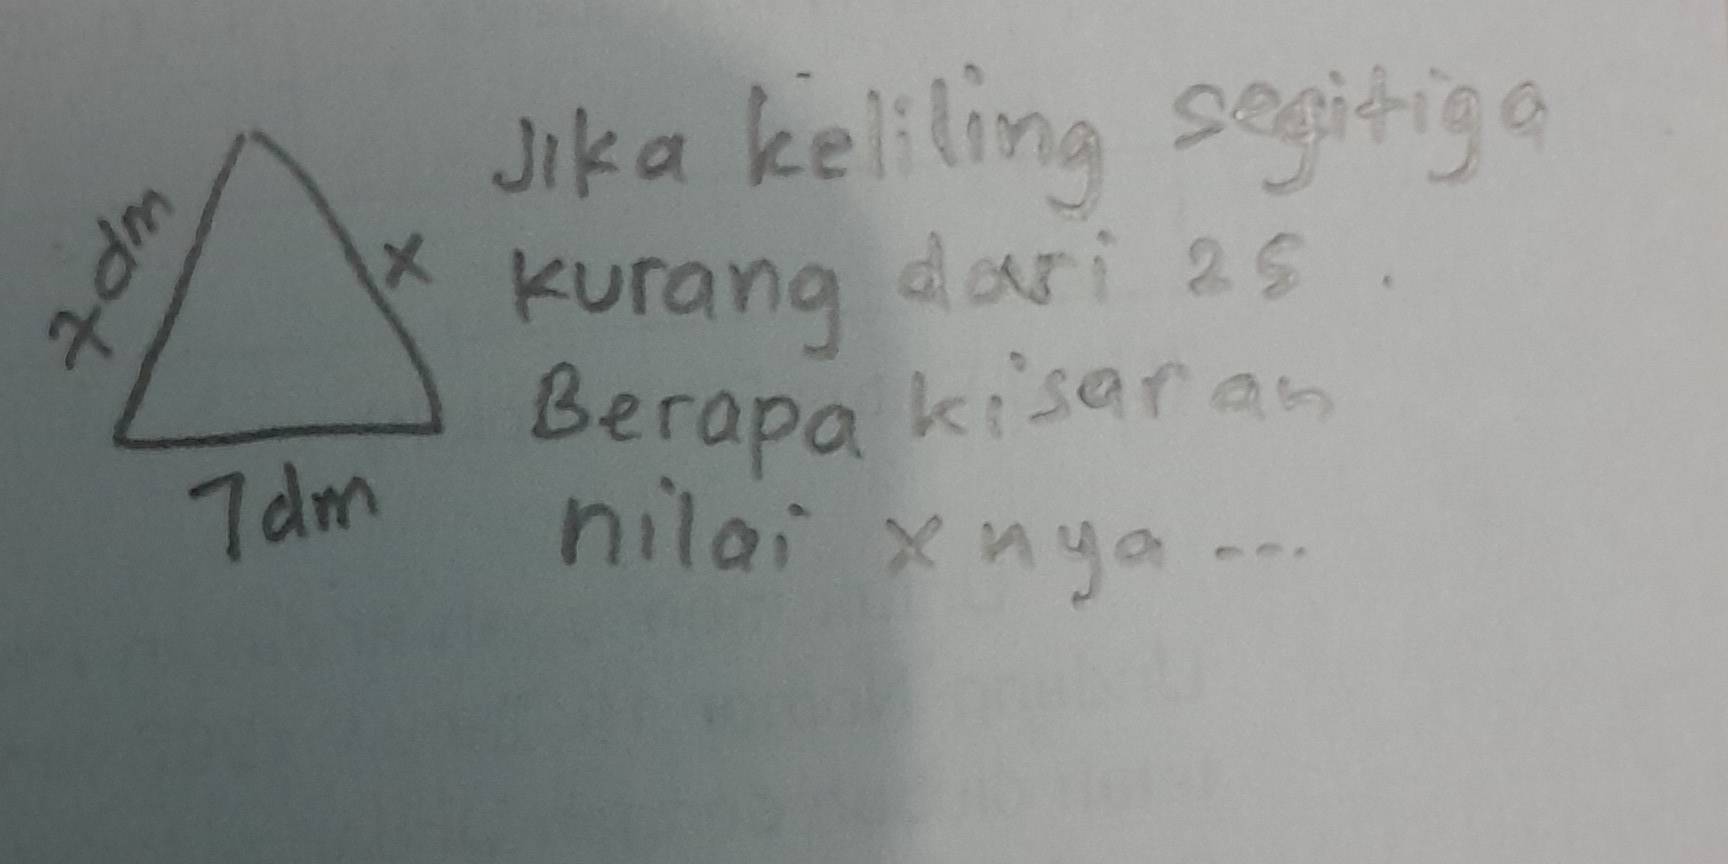 x dm
x
7 dm
Jika keliling segitiga
kurang dari 25.
Berapa kisaran
nilai x nya ---